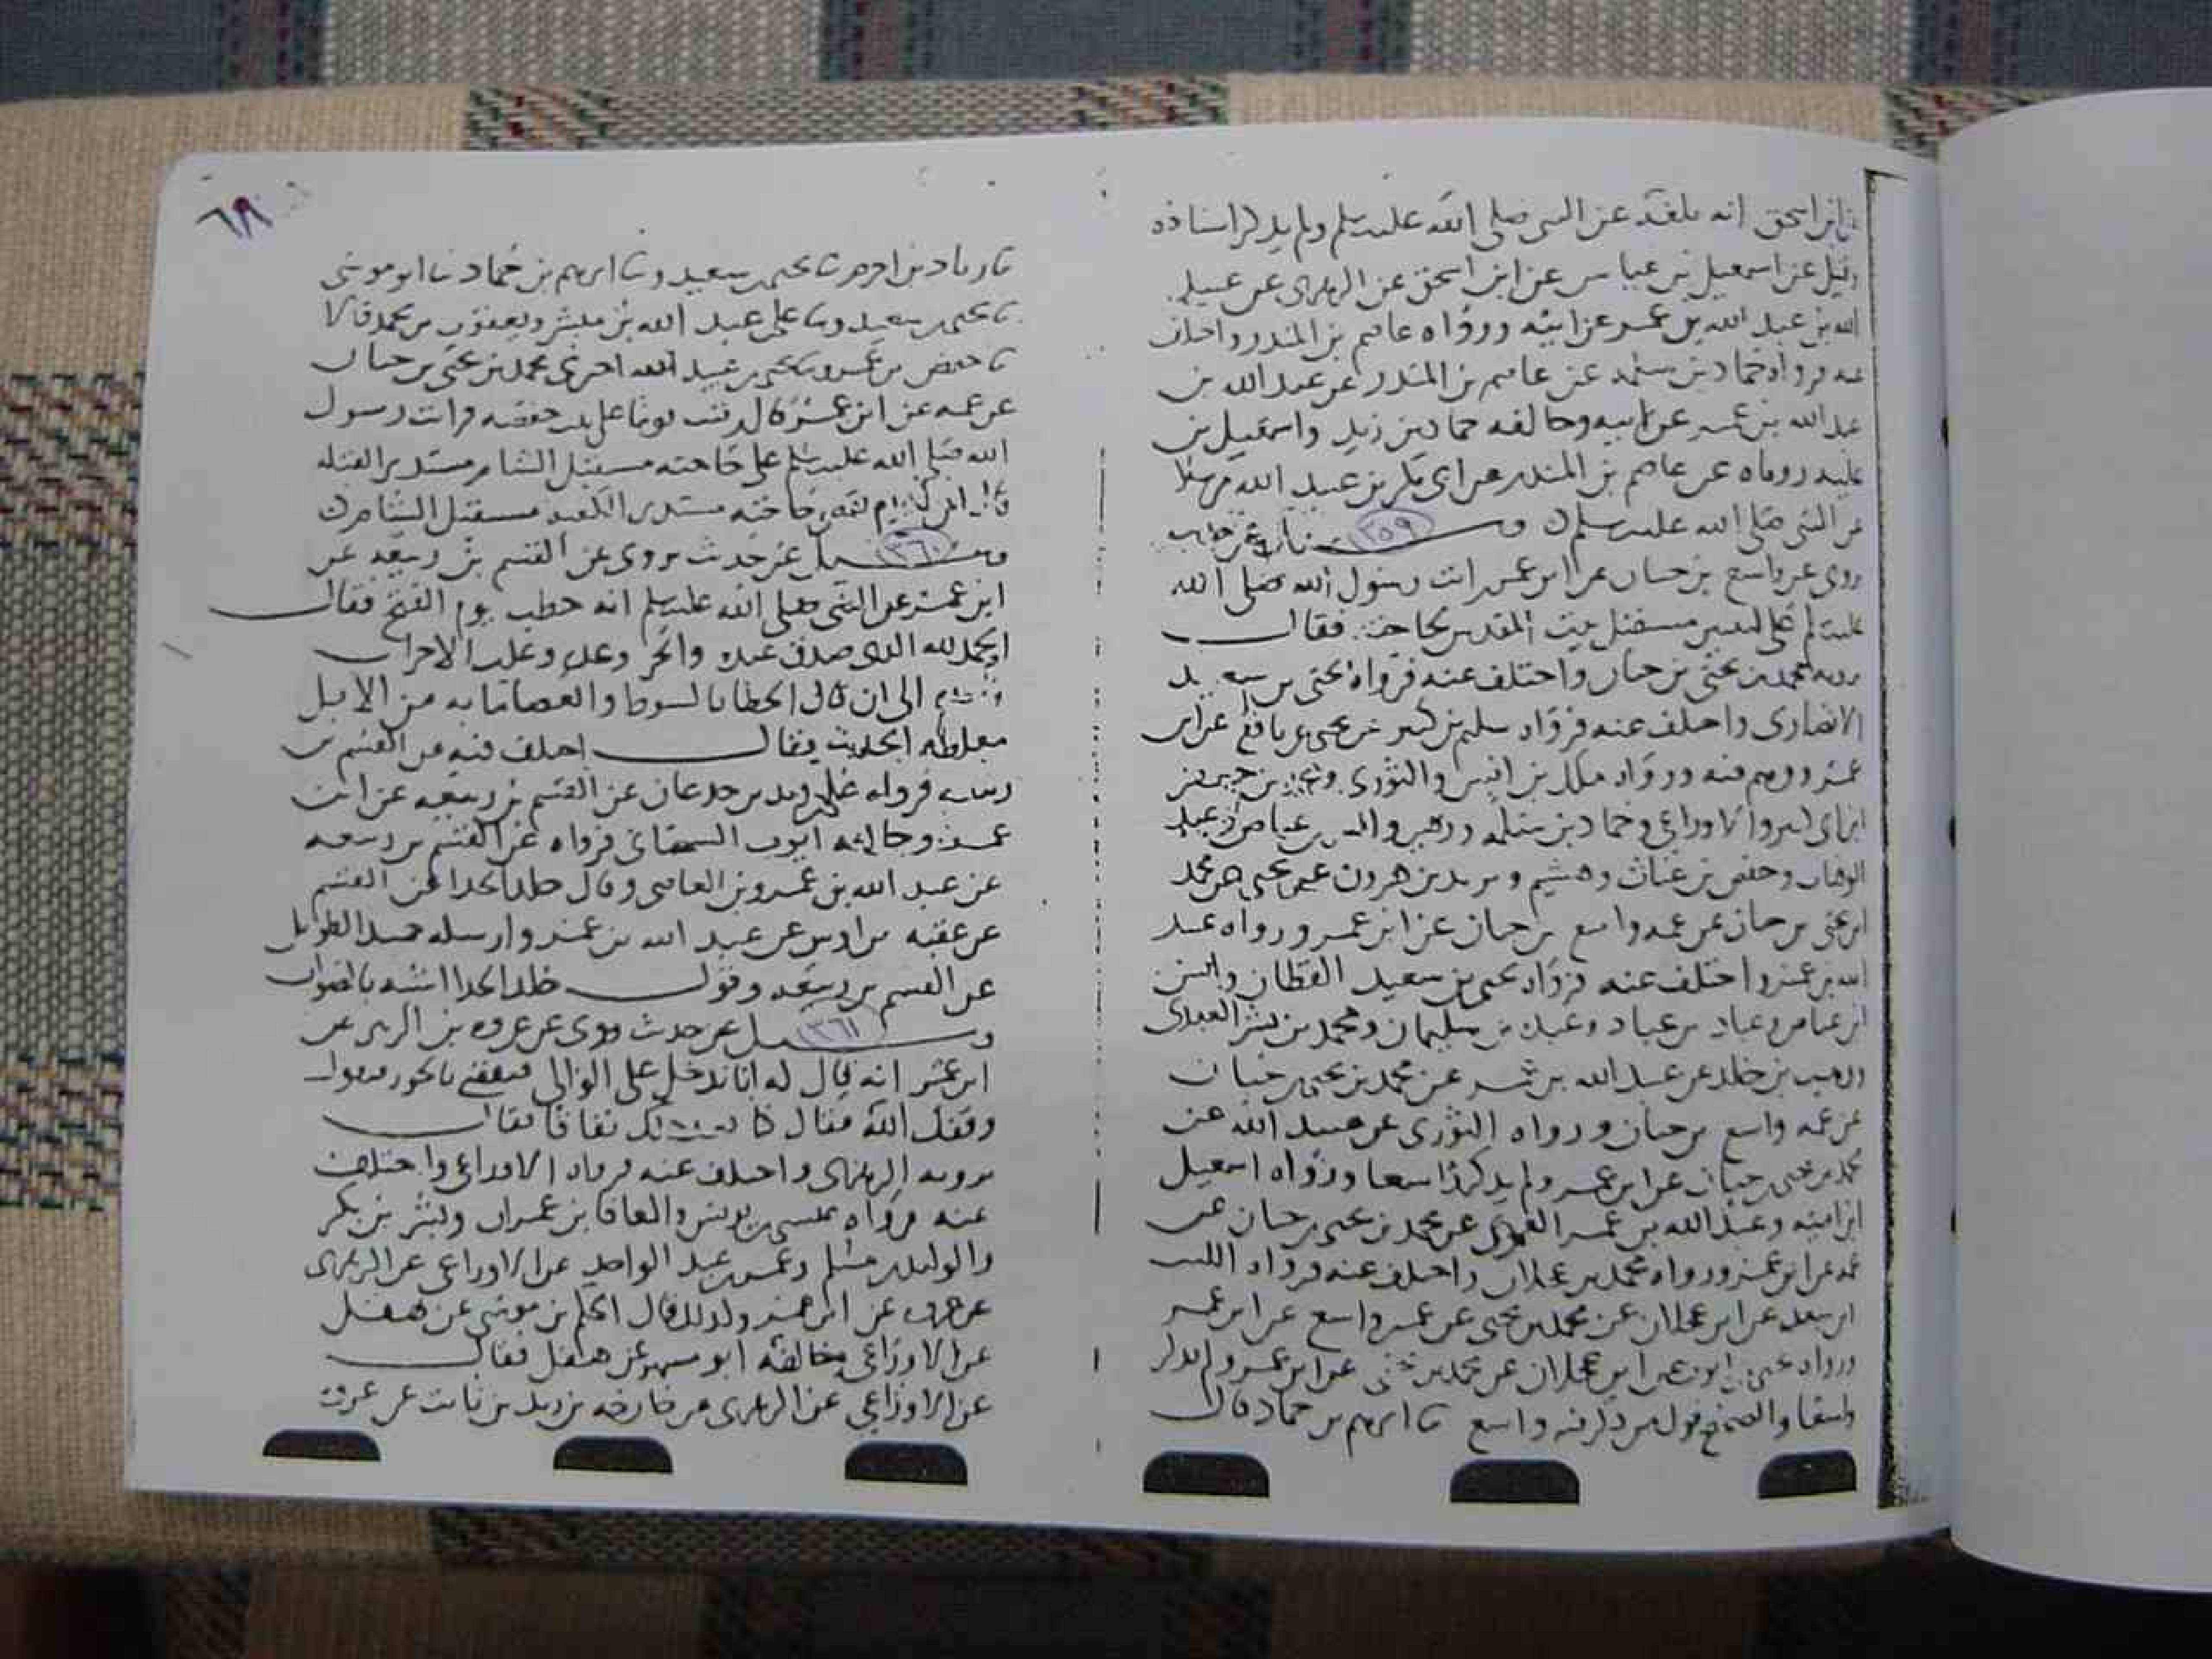 ابن اسحق انه بلغه عن النبى صلى الله عليه وسلم ولم يذكر اسناده
وقيل عن اسمعيل بن عياش عن ابن اسحق عن الزهرى عن عبيد
الله بن عبد الله بن عمر عن ابيه ورواه عاصم بن المنذر واختلف
عنه فرواه حماد بن سلمه عن عاصم بن المنذر عن عبد الله بن
عبد الله بن عمر عن ابيه وخالفه حماد بن زيد واسمعيل بن
عليه روياه عن عاصم بن المنذر عن ابى بكر بن عبيد الله مرسلا
عن النبى صلى الله عليه وسلم ٣٥٩ وسئل عن حديث
روى عن واسع بن حبان عن ابن عمر رايت رسول الله صلى الله
عليه وسلم على لبنتين مستقبل بيت المقدس لحاجته فقال
يرويه محمد بن يحيى بن حبان واختلف عنه فرواه يحيى بن سعيد
الانصارى واختلف عنه فرواه سليمن بن كثير عن يحيى عن نافع عن ابن
عمر ووهم فيه ورواه ملك بن انس والثورى
والاوزاعى وحماد بن سلمه وزهير وانس بن عياض وعبد
الوهاب وحفص بن غياث وهشيم ويزيد بن هرون عن يحيى عن محمد
ابن يحيى بن حبان عن عمه واسع بن حبان عن ابن عمر ورواه عبيد
الله بن عمر واختلف عنه فرواه يحيى بن سعيد القطان وانس
ابن عياض وعباد بن عباد وعبده بن سليمان ومحمد بن بشر العبدى
ووهيب بن خالد عن عبيد الله بن عمر عن محمد بن يحيى بن حبان
عن عمه واسع بن حبان ورواه الثورى عن عبيد الله عن
محمد بن يحيى بن حبان عن ابن عمر ولم يذكر واسعا ورواه اسمعيل
ابن اميه وعبد الله بن عمر العمرى عن محمد بن يحيى بن حبان عن
عمه عن ابن عمر ورواه محمد بن عجلان واختلف عنه فرواه الليث
ابن سعد عن ابن عجلان عن محمد بن يحيى عن عمه واسع عن ابن عمر
ورواه يحيى بن ايوب عن ابن عجلان عن محمد بن يحيى عن ابن عمر ولم يذكر
واسعا والصحيح قول من ذكر فيه واسع ثنا ابرهيم بن حماد قال
٦٨
ثنا يحيى بن سعيد وثنا ابرهيم بن حماد ثنا ابو موسى
ثنا يحيى بن سعيد وثنا على بن عبد الله بن مبشر ويعقوب بن محمد قالا
ثنا حفص بن عمرو ثنا يحيى عن عبيد الله اخبرنى محمد بن يحيى بن حبان
عن عمه عن ابن عمر قال رقيت يوما على بيت حفصه فرايت رسول
الله صلى الله عليه وسلم على حاجته مستقبل الشام مستدبر القبله
حاجته مستدبر الكعبه مستقبل الشام
٣٦٠ وسئل عن حديث يروى عن القسم بن ربيعه عن
ابن عمر عن النبى صلى الله عليه وسلم انه خطب يوم الفتح فقال
الحمد لله الذى صدق عبده وانجز وعده وغلب الاحزاب
الى ان قال الخطا بالسوط والعصا مايه من الابل
مغلظه الحديث فقال اختلف فيه عن القسم بن
ربيعه فرواه على بن زيد بن جدعان عن القسم بن ربيعه عن ابن
عمر وخالفه ايوب السختيانى فرواه عن القسم بن ربيعه
عن عبد الله بن عمرو بن العاصى وقال خالد الحذا عن القسم
عن عقبه بن اوس عن عبد الله بن عمرو وارسله حميد الطويل
عن القسم بن ربيعه وقول خلد الحذا اشبه بالصواب
٣٦١ وسئل عن حديث روى عن عروه بن الزبير عن
ابن عمر انه قال له انا ندخل على الوالى فيقضى بالجور فيقول
وفقك الله فقال كنا نعد ذلك نفاقا فقال
يرويه الزهرى واختلف عنه فرواه الاوزاعى واختلف
عنه فرواه عيسى بن يونس والمعافا بن عمران وبشر بن بكر
والوليد بن مسلم وعمر بن عبد الواحد عن الاوزاعى عن الزهرى
عن عروه عن ابن عمر وكذلك قال الحكم بن موسى عن هقل
عن الاوزاعى وخالفه ابو مسهر عن هقل فقال
عن الاوزاعى عن الزهرى عن خارجه بن زيد بن ثابت عن عروه